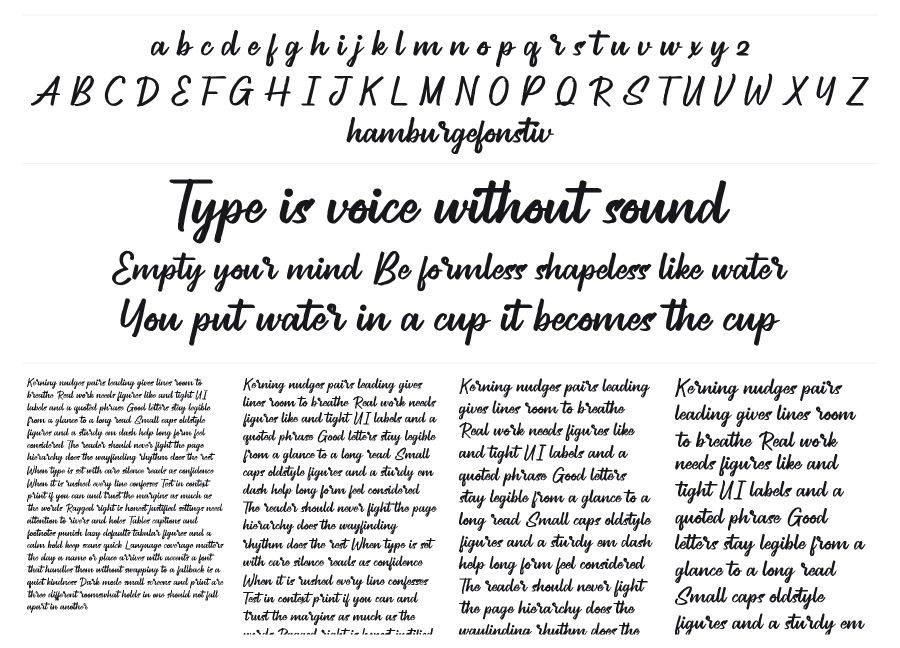 a b c d e f g h i j k l m n o p q r s t u v w x y z
A B C D E F G H I J K L M N O P Q R S T U V W X Y Z
hamburgefonstiv
Type is voice without sound
Empty your mind Be formless shapeless like water
You put water in a cup it becomes the cup
Kerning nudges pairs leading gives lines room to
breathe Real work needs figures like and tight UI
labels and a quoted phrase Good letters stay legible
from a glance to a long read Small caps oldstyle
figures and a sturdy em dash help long form feel
considered The reader should never fight the page
hierarchy does the wayfinding rhythm does the rest
When type is set with care silence reads as confidence
When it is rushed every line confesses Test in context
print if you can and trust the margins as much as
the words Ragged right is honest justified settings need
attention to rivers and holes Tables captions and
footnotes punish lazy defaults tabular figures and a
calm bold keep scans quick Language coverage matters
the day a name or place arrives with accents a font
that handles them without swapping to a fallback is a
quiet kindness Dark mode small screens and print are
three different rooms what holds in one should not fall
apart in another
Kerning nudges pairs leading gives
lines room to breathe Real work needs
figures like and tight UI labels and a
quoted phrase Good letters stay legible
from a glance to a long read Small
caps oldstyle figures and a sturdy em
dash help long form feel considered
The reader should never fight the page
hierarchy does the wayfinding
rhythm does the rest When type is set
with care silence reads as confidence
When it is rushed every line confesses
Test in context print if you can and
trust the margins as much as the
words Ragged right is honest justified
Kerning nudges pairs leading
gives lines room to breathe
Real work needs figures like
and tight UI labels and a
quoted phrase Good letters
stay legible from a glance to a
long read Small caps oldstyle
figures and a sturdy em dash
help long form feel considered
The reader should never fight
the page hierarchy does the
wayfinding rhythm does the
Kerning nudges pairs
leading gives lines room
to breathe Real work
needs figures like and
tight UI labels and a
quoted phrase Good
letters stay legible from a
glance to a long read
Small caps oldstyle
figures and a sturdy em